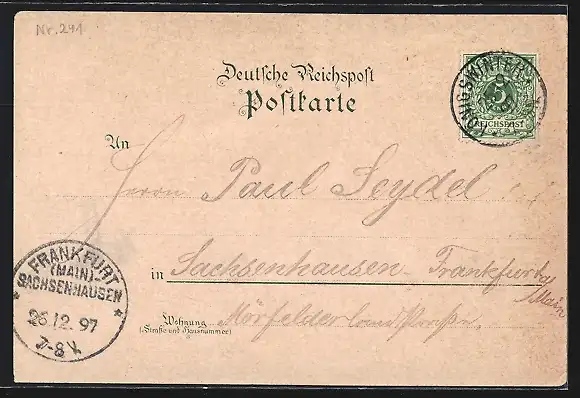 Nr. 241
Deutsche Reichspost
Postkarte
KÖNIGSWINTER
5
REICHSPOST
An
Herrn Paul Seydel
in Sachsenhausen - Frankfurt
Main
Wohnung Mörfelderlandstraße
(Straße und Hausnummer)
FRANKFURT
(MAIN)
SACHSENHAUSEN
26.12.97
7-8V.